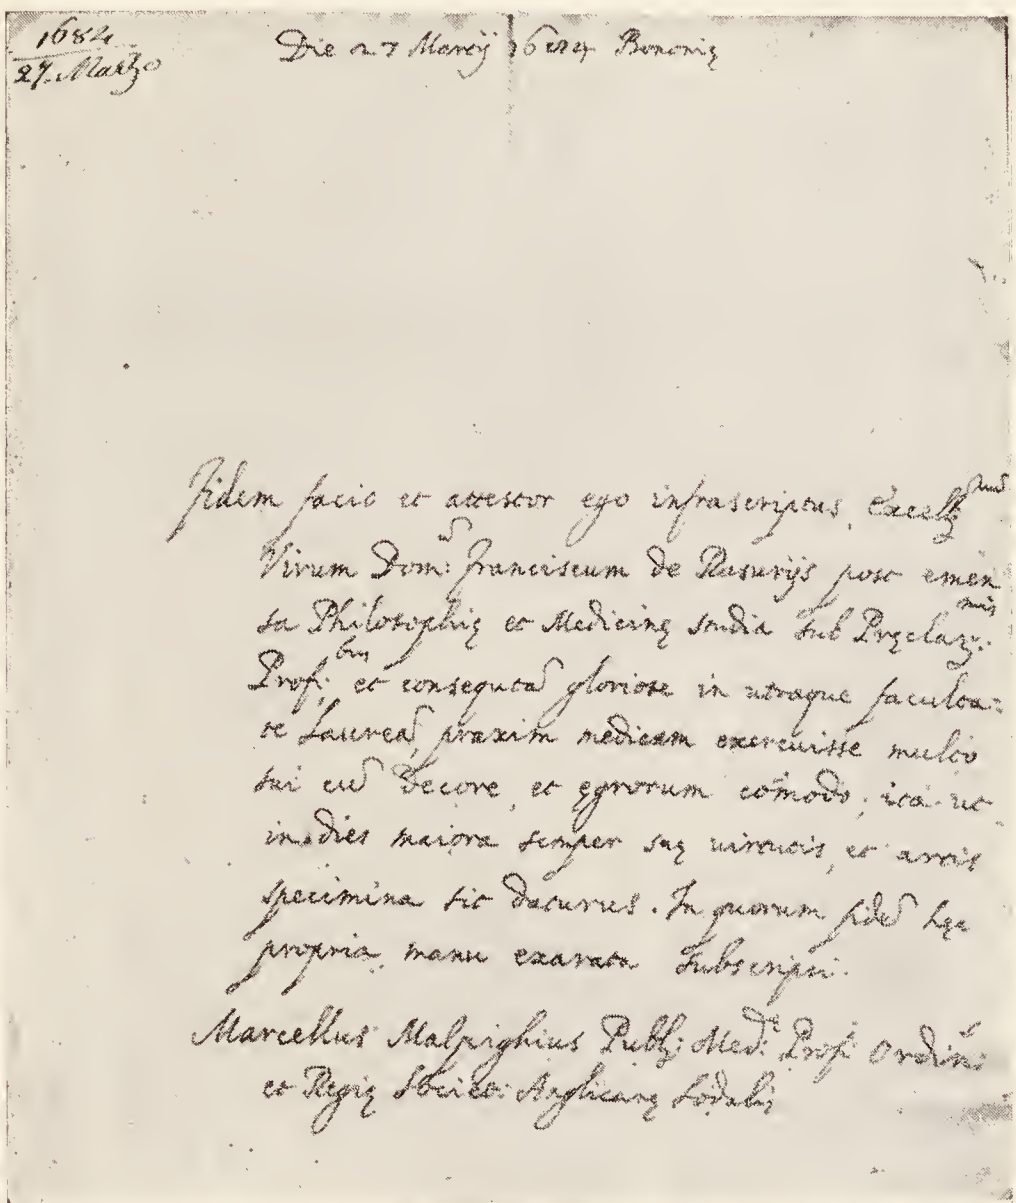 1684
27. Marzo
Die 27 Martij 1684 Bononię
Fidem facio et attestor ego infrascriptus, Excell.mũ
Virum Dom:ũ Franciscum de Rasurijs post emen
sa Philosophię et Medicinę studia sub Pręclar:mis
Prof:bus et consequutã gloriose in utraque faculta:
te Laureã, praxim medicam exercuisse multo
sui cũ decore, et ęgrorum cõmodo; ita ut
in dies maiora semper suę uirtutis, et artis
specimina sit daturus. In quorum fidẽ hęc
propria manu exarata subscripsi.
Marcellus Malpighius Publ: Med:ę Prof:r Ordin:s
et Regię Societ: Anglicanę Sodalis